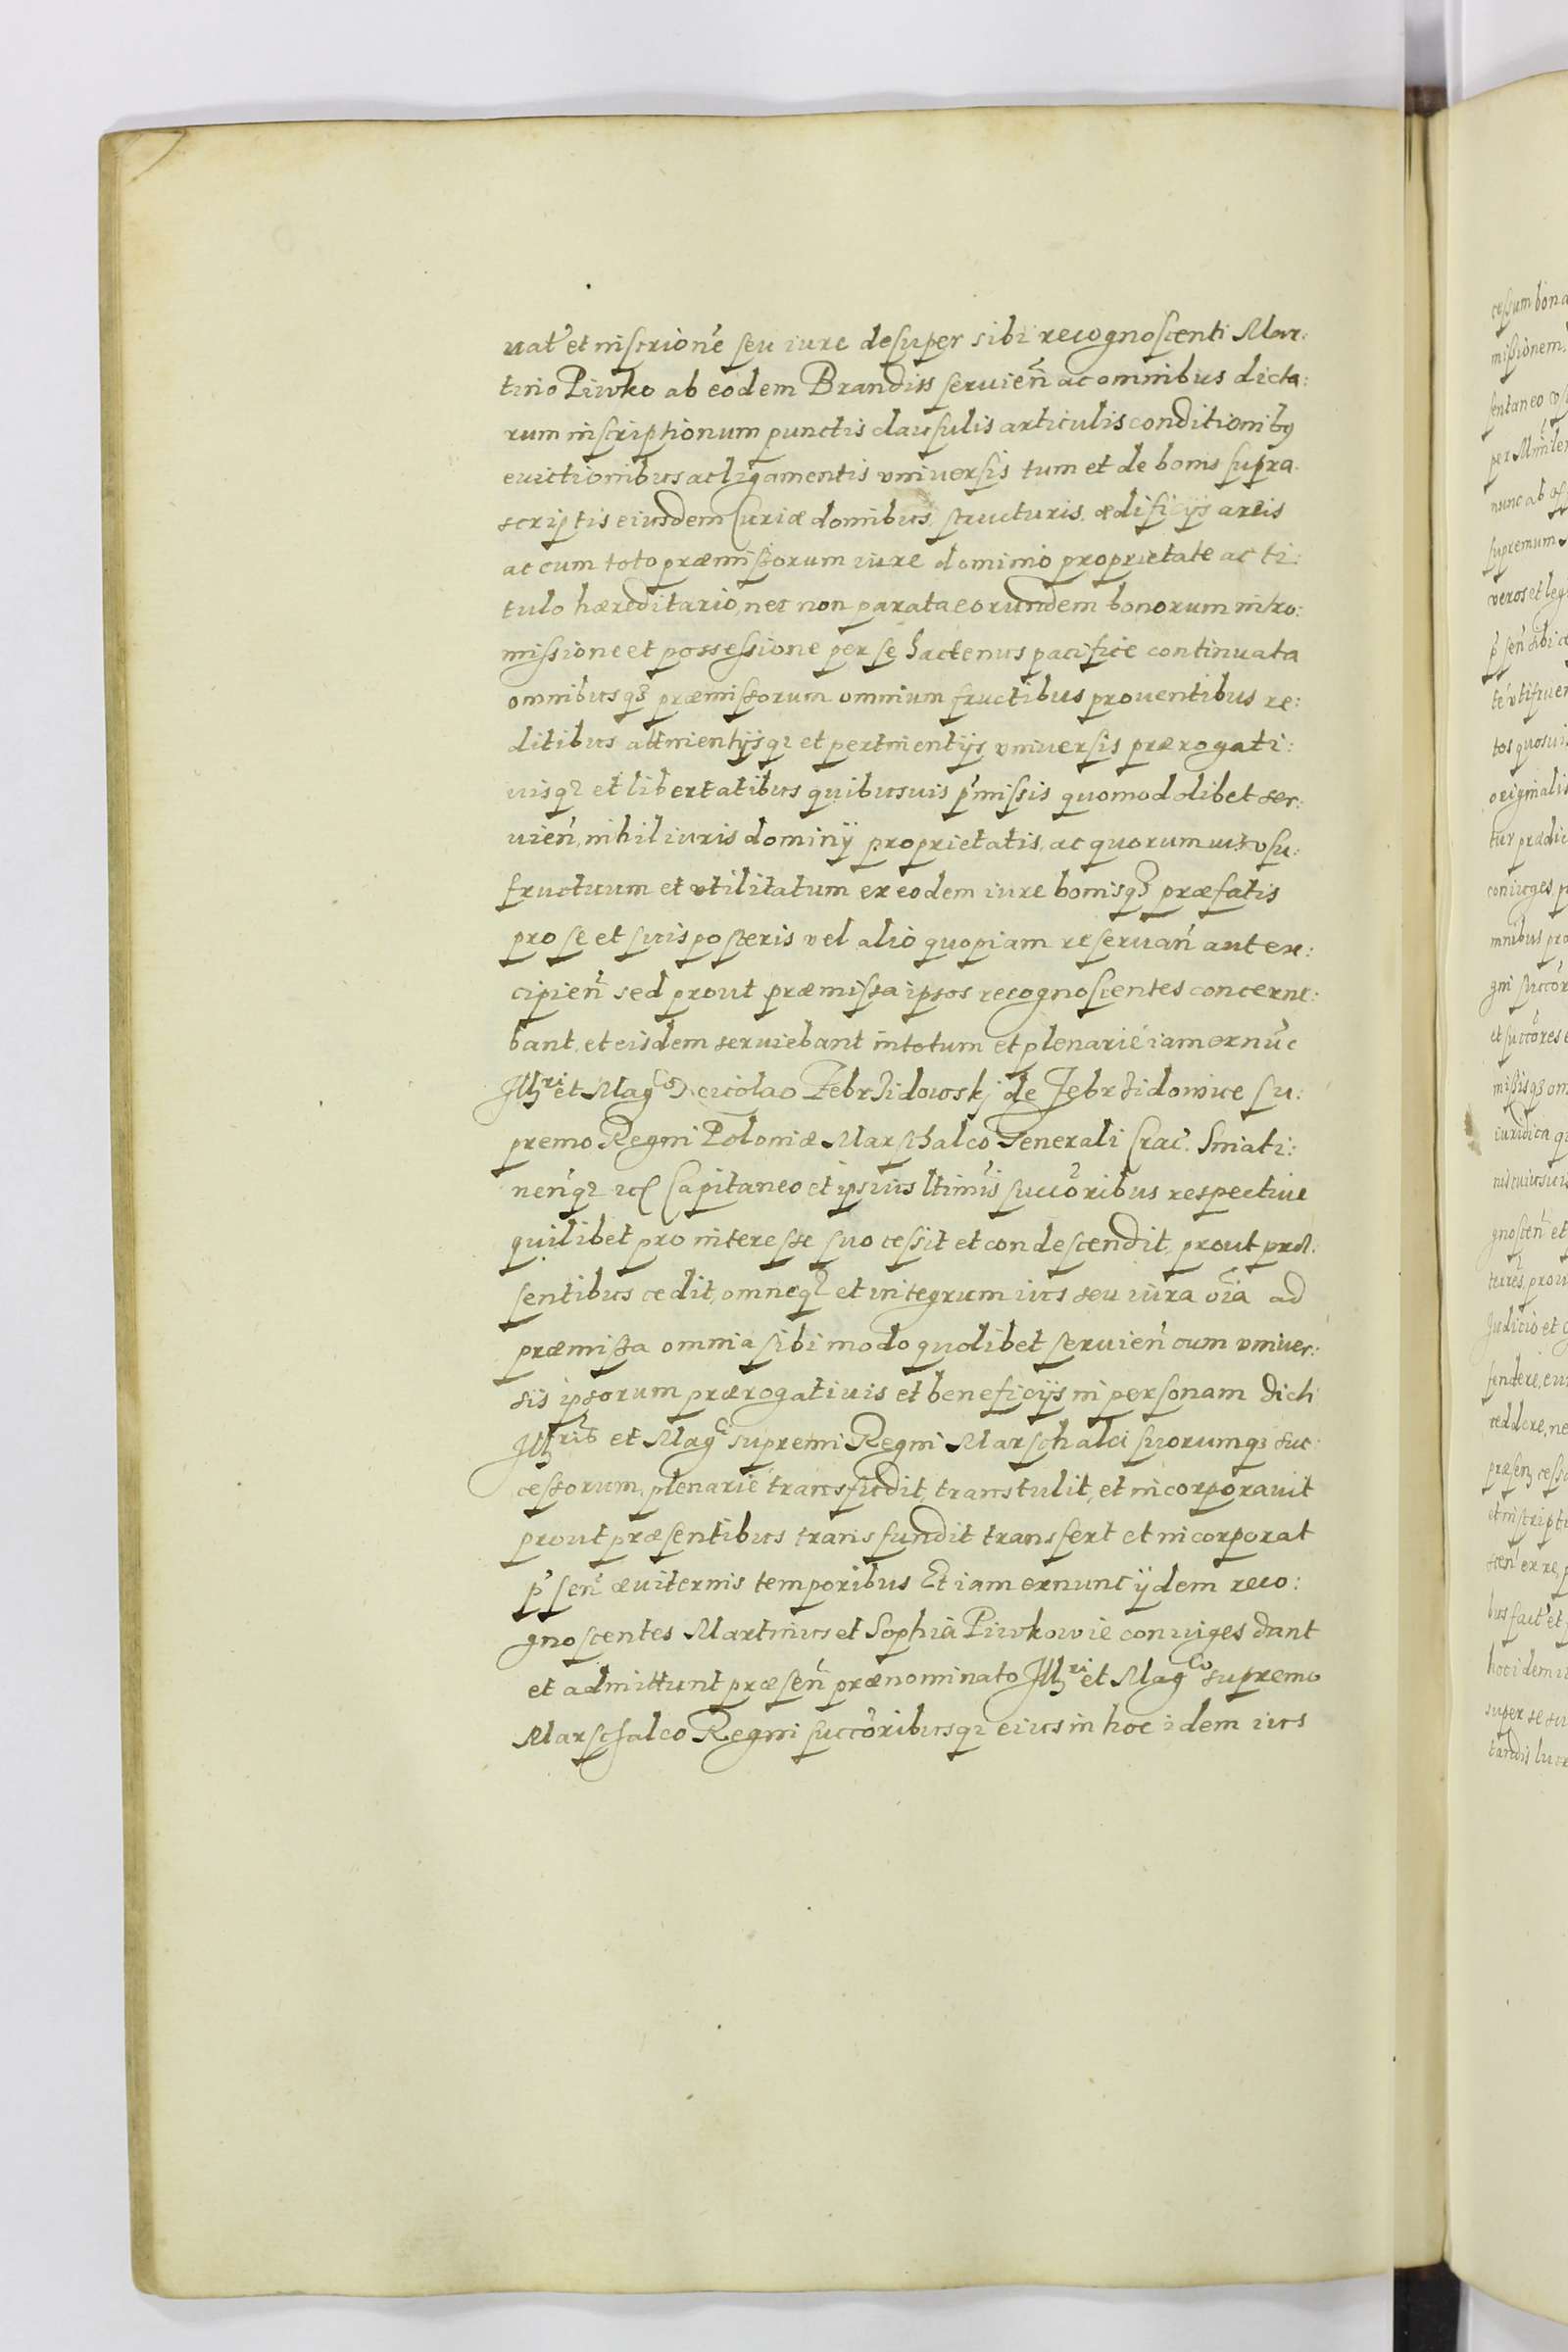 uat' et inscrione' seu iure desuper sibi recognoscenti Mar:
tino Piwko ab eodem Brandiss seruien' ac omnibus dicta:
rum inscriptionum punctis clausulis articulis conditionibꝯ
euictionibus ac ligamentis vniuersis tum et de bonis supra
scriptis eiusdem Curiæ domibus, structuris, ædificijs areis
ac cum toto præmissorum iure dominio proprietate ac ti:
tulo hæreditario, nec non parata eorundem bonorum intro:
missione et possessione per se hactenus pacifice continuata
omnibusqꝫ præmissorum omnium fructibus prouentibus re:
ditibus attinentijsqꝫ et pertinentijs vniuersis prærogati:
uisqꝫ et libertatibus quibusuis p'missis quomodolibet ser:
uien', nihil iuris dominij proprietatis, ac quorumuis vsu:
fructuum et vtilitatum ex eodem iure bonisqꝫ præfatis
pro se et suis posteris vel alio quopiam reseruan' aut ex:
cipien' sed prout præmissa ipsos recognoscentes concerne:
bant, et eisdem seruiebant in totum et plenarie iam ex nu'c
Illri et Magco Nicolao Zebrzidowskj de Zebrzidowice Su:
premo Regni Poloniæ Marschalco Generali Crac'. Sniati:
nen'qꝫ Capitaneo et ipsius ltimis succo'ribus respectiue
quilibet pro interesse suo cessit et condescendit, prout præ:
sentibus cedit, omneqꝫ et integrum ius seu iura o'ia ad
præmissa omnia sibi modo quolibet seruien' cum vniuer:
sis ipsorum prærogatiuis et beneficijs in personam dicti
Illris et Magci supremi Regni Marschalci suorumqꝫ suc:
cessorum, plenarie transfudit, transtulit, et incorporauit
prout præsentibus transfundit transfert et incorporat
p'sen' æuiternis temporibus Et iam ex nunc ijdem reco:
gnoscentes Martinus et Sophia Piwkowie coniuges dant
et admittunt præsen' prænominato Illri et Magco supremo
Marschalco Regni succo'ribusqꝫ eius in hoc idem ius